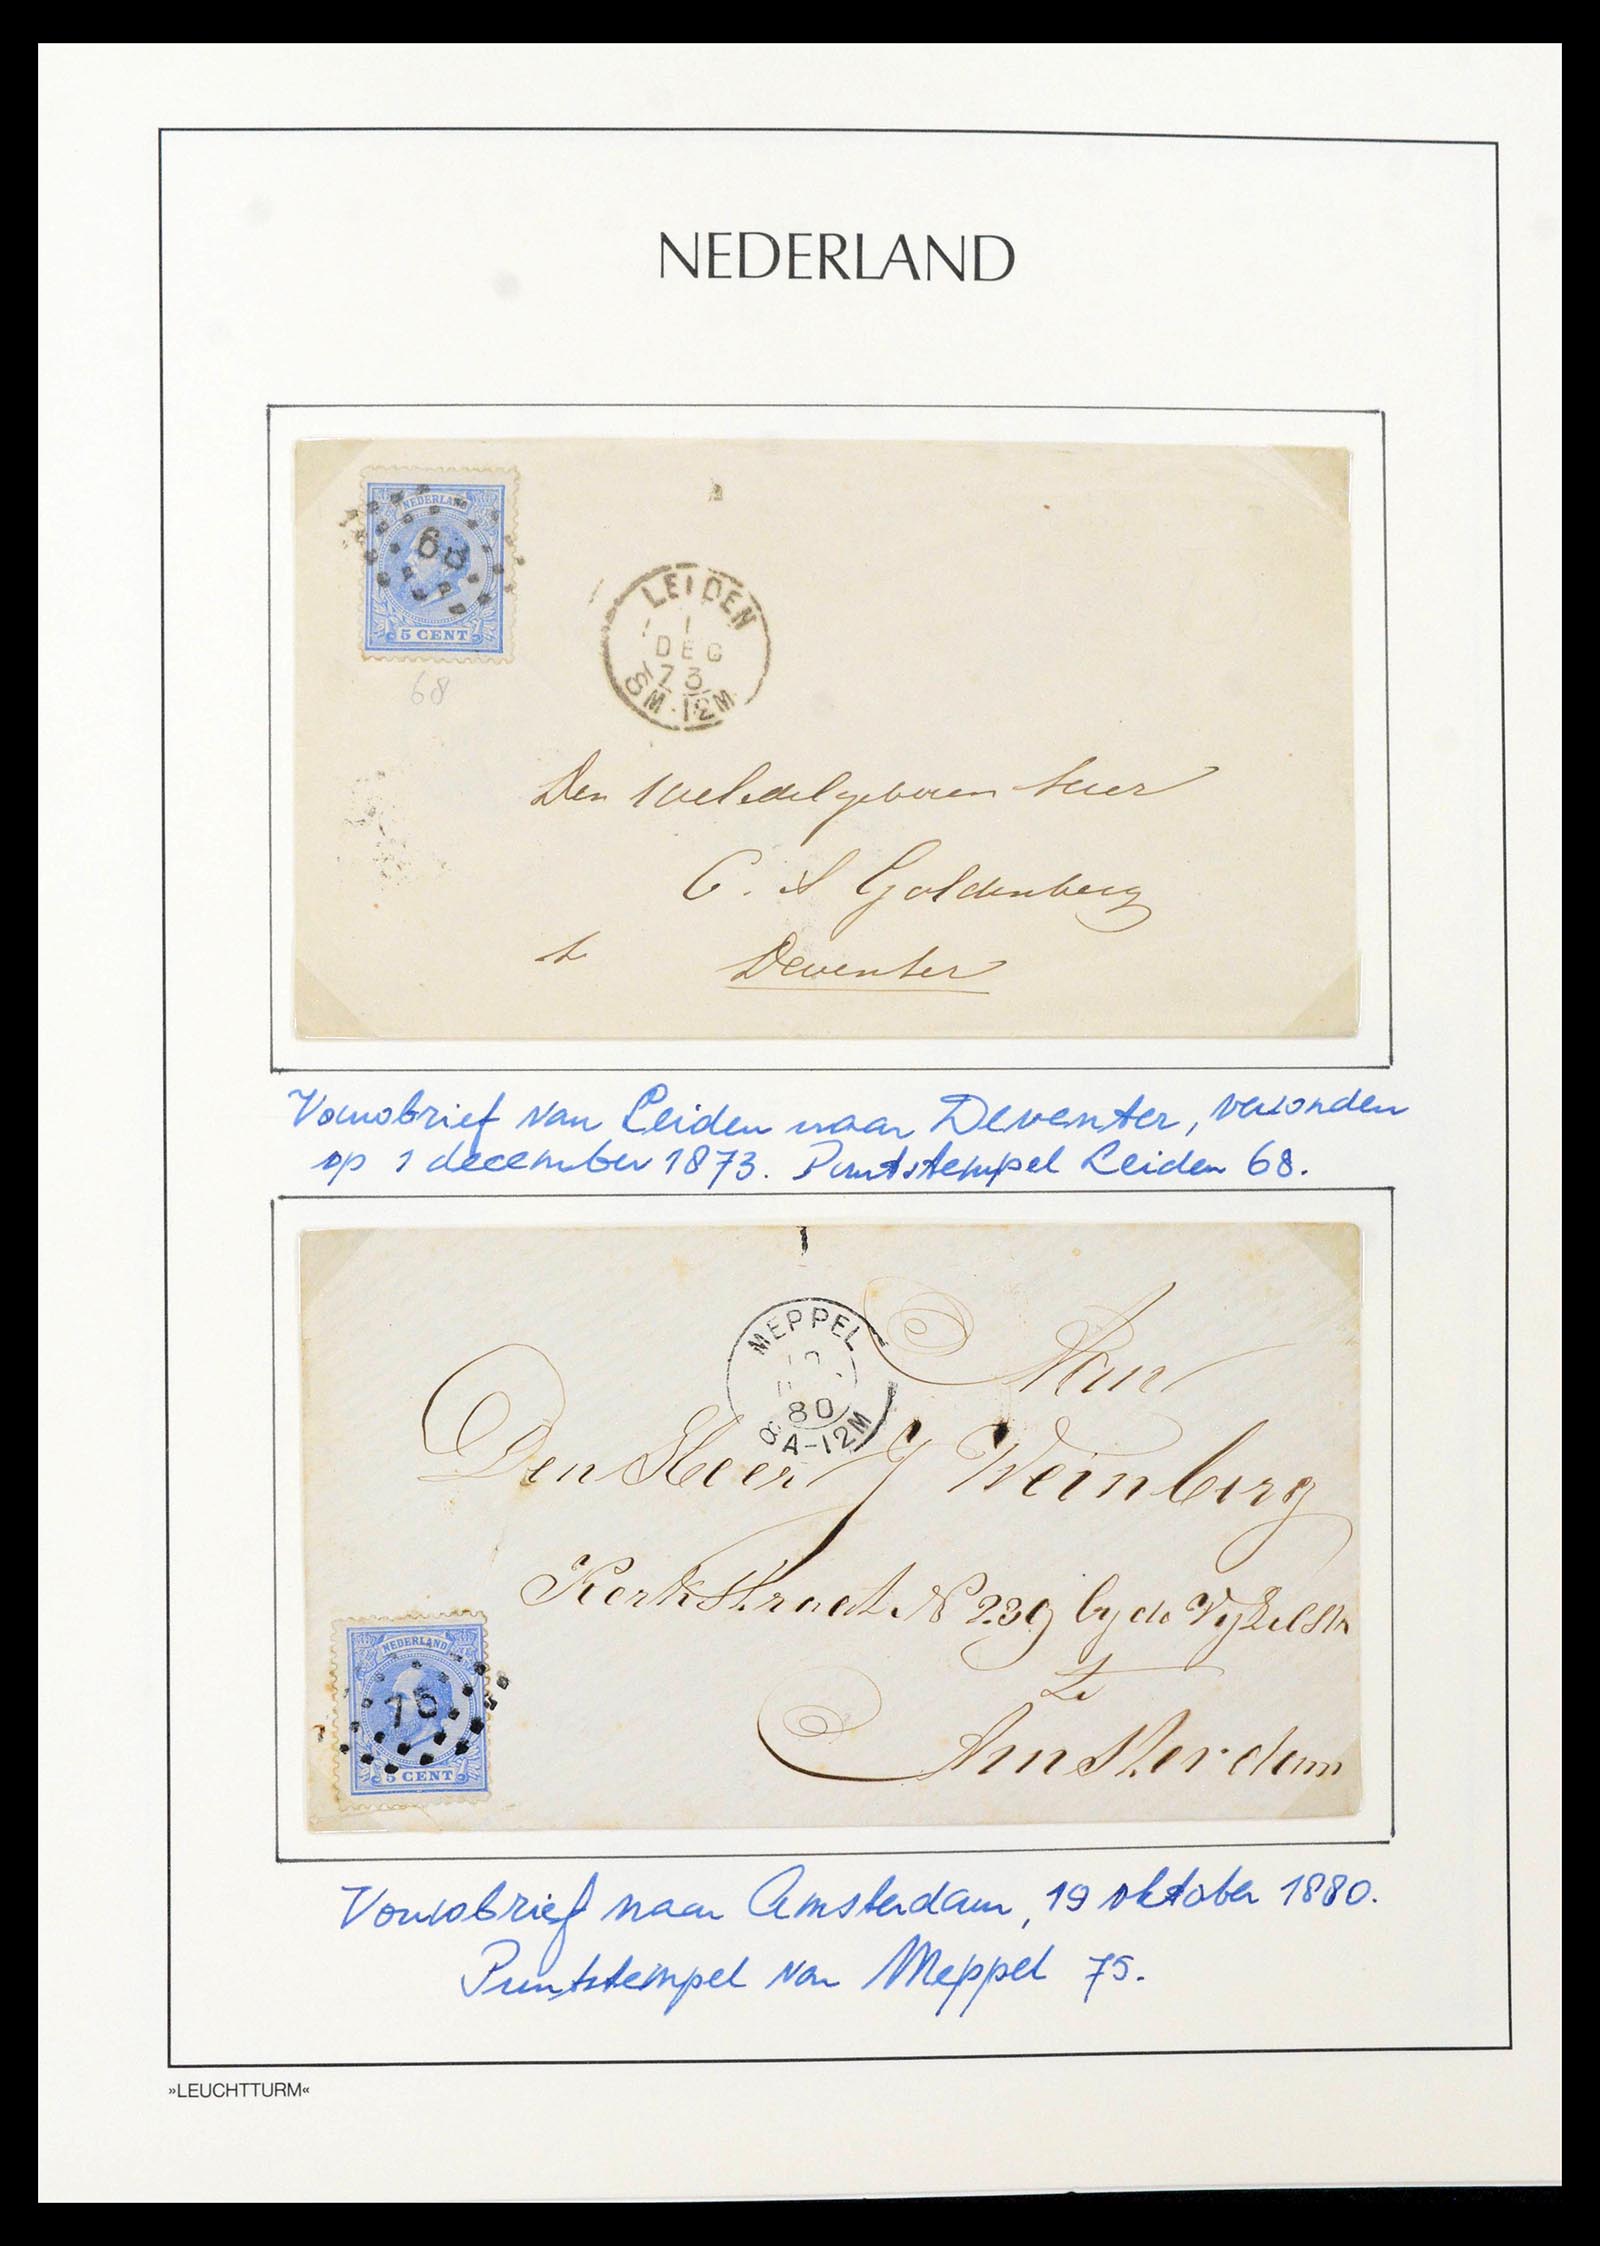 NEDERLAND
NEDERLAND
68
5 CENT
68
LEIDEN
1
DEC
73
8M-12M
Den Weledelgeboren Heer
C. S Goldenberg
te Deventer
Vouwbrief van Leiden naar Deventer, verzonden
op 1 december 1873. Puntstempel Leiden 68.
MEPPEL
80
8A-12M
Aan
Den Heer J Weinberg
Kerkstraat N 239 by de Vyzelstr
te
Amsterdam
NEDERLAND
75
5 CENT
Vouwbrief naar Amsterdam, 19 oktober 1880.
Puntstempel van Meppel 75.
»LEUCHTTURM«